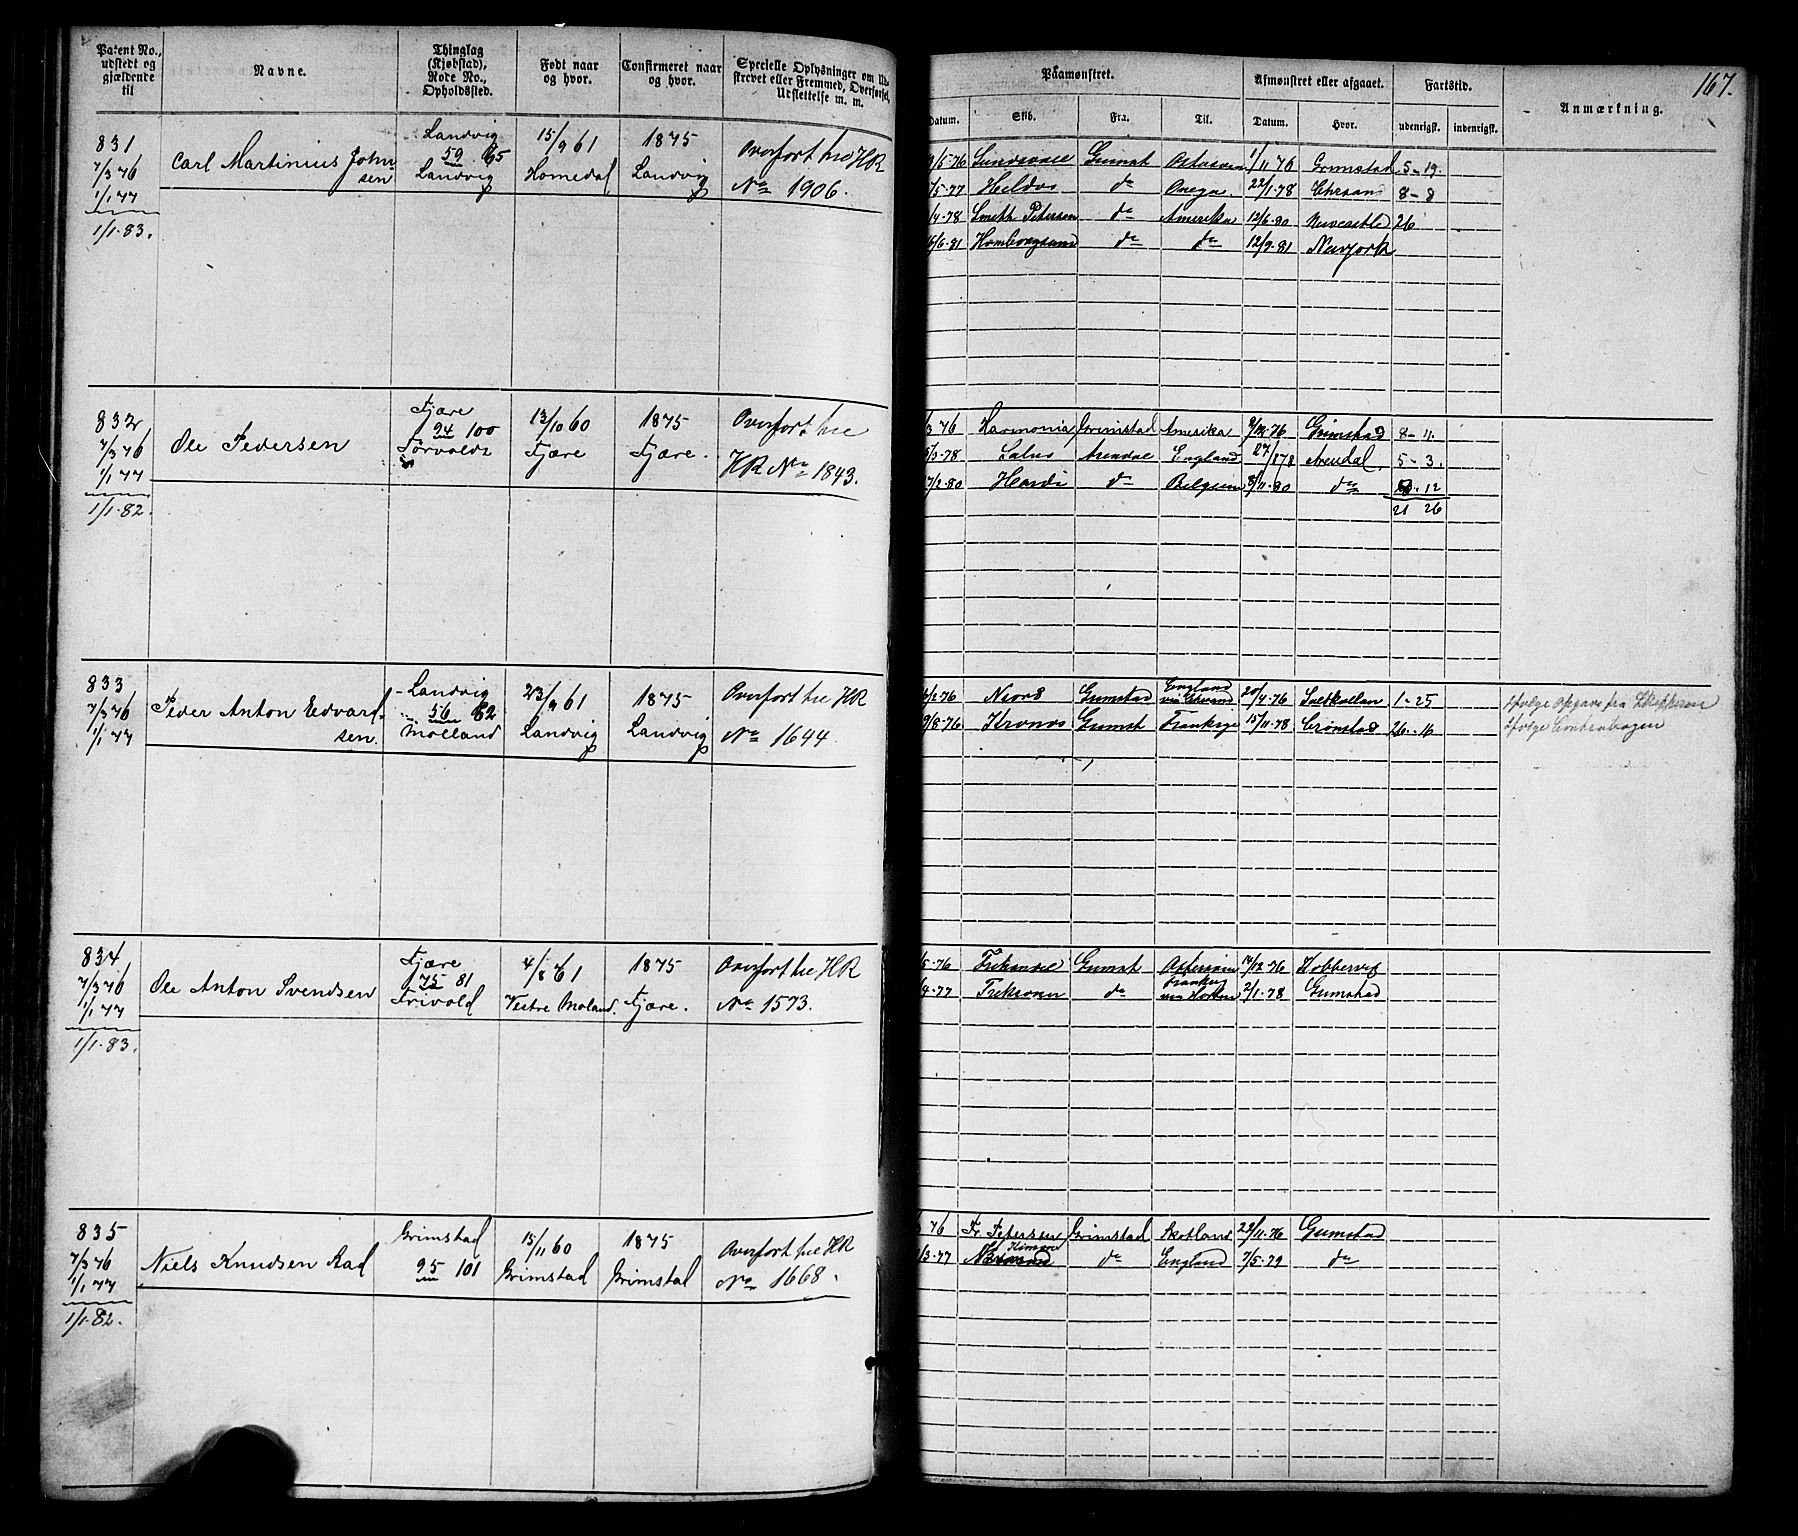 167.
Patent No., udstedt og gjældende til
Navne.
Thinglag (Kjøbstad), Rode No., Opholdssted.
Født naar og hvor.
Confirmeret naar og hvor.
Specielle Oplysninger om Ud-
skrevet eller Fremmed, Overførsel,
Udslettelse m. m.
Paamønstret.
Datum. Skib. Fra. Til.
Afmønstret eller afgaaet.
Datum. Hvor.
Fartstid.
udenrigsk. indenrigsk.
Anmærkning.
831 7/3 76 1/1 77 1/1.83.
Carl Martinius John
sen
Landvig
59. 65
Landvig
15/9 61
Homedal
1875
Landvig
Overført til HR
No 1906.
9/5-76 Sundsvall Grimst Østersøen 1/11 76 Grimstad 5-19.
/5-77 Heldos do Onega 22/1-78 Chrsand 8-8
/4-78 Smith Petersen do Amerika 12/6.80 Newcastle 26
/6-81 Homborgsund do do 12/9.81 Newyork
832 7/3 76 1/1 77 1/1.82.
Ole Pedersen
Fjære
94 100
Torvolds
13/10 60
Fjære
1875
Fjære.
Overført til
HR No 1843.
/3 76 Harmonia Grimstad Amerika 9/12-76 Grimstad 8-11.
/3-78 Salus Arendal England 27/8 78 Arendal. 5-3.
/2-80 Hardi do Belgien 8/11-80 do 12
21 26
833 7/3 76 1/1 77
Peder Anton Edvard
sen.
Landvig
56 62
Molland
23/9 61
Landvig
1875
Landvig
Overført til HR
No 1644.
/2-76 Njord Grimstad England 20/4-76 1-25 ifølge Opgave fra Skipperen
9/8-76 Kronos Grimst Frankrige 15/11-78 Crönstad 26-16 ifølge
834 7/3 76 1/1 77 1/1.83.
Ole Anton Svendsen
Fjære
75 81
Frivold
4/8 61
Vestre Moland.
1875
Fjære.
Overført til HR
No 1573.
/5-76 Grimst Østersøen /12-76
/4-77 do Frankrig 2/1-78 Grimstad
835 7/3 76 1/1 77 1/1.82.
Niels Knudsen Aad
Grimstad
95 101
15/11 60
Grimstad
1875
Grimstad
Overført til HR
No 1668.
76 Fr. Petersen Grimstad Skotland 22/11-76 Grimstad
/3-77 do England 7/5-79 do